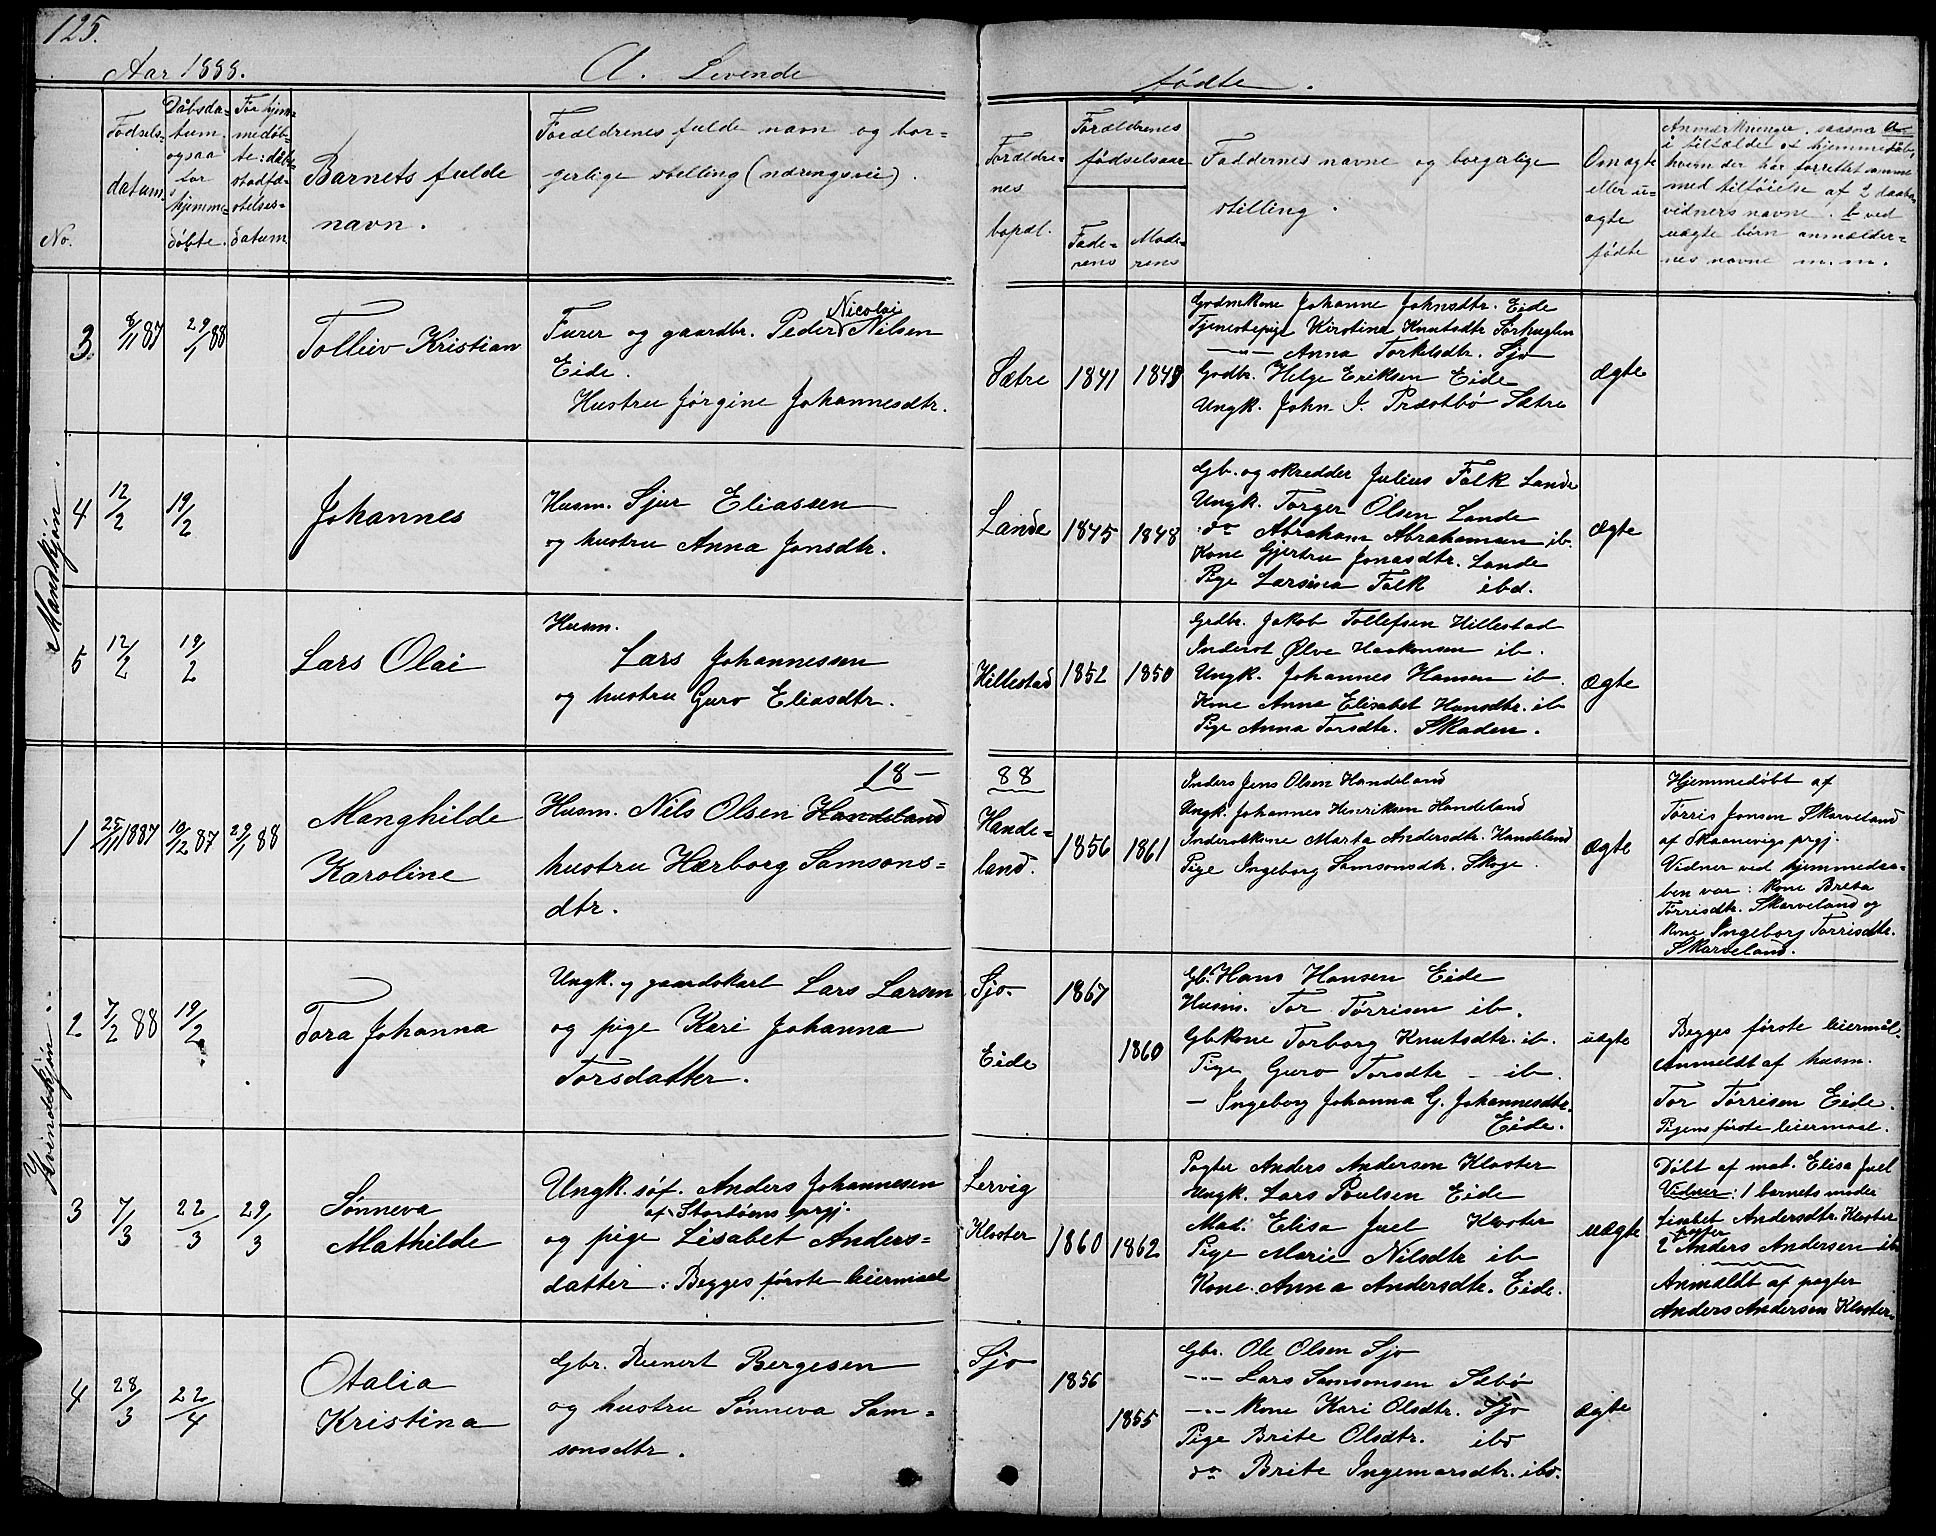 125.
Aar 1888. A. Levende fødte.
No.
Fødsels-
datum.
Dåbsda-
tum.
ogsaa
for
hjemme-
døbte.
For hjem-
medøb-
te: dåbs-
stadfæ-
stelses-
datum
Barnets fulde
navn.
Forældrenes fulde navn og bor-
gerlige stilling (næringsvei).
Forældre-
nes
bopæl.
Forældrenes
fødselsaar
Fade-
rens
Mode-
rens
Faddernes navne og borgerlige
stilling.
Om ægte
eller u-
ægte
fødte
Anmærkninger, saasom a
i tilfælde af hjemmedåb,
hvem der har forrettet samme
med tilføielse af 2 daabs-
vidners navne. b ved
uægte børn anmelder-
nes navne m.m.
Mandkjøn.
3. 8/11 87 29/1 88 Tolleiv Kristian
Furer og gaardbr. Peder Nicolai Nilsen
Eide.
Hustru Jørgine Johannesdtr.
Sætre 1841 1849
Godmkone Johanne Johnsdtr. Eide
Tjenestepige Kirstina Knutsdtr Sørhuglen
—"— Anna Torkelsdtr. Sjo
Godbr. Helge Eriksen Eide
Ungk. John I. Præstbø Sætre
ægte
4 12/2 19/2 Johannes
Husm. Sjur Eliassen
og hustru Anna Jonsdtr.
Lande 1845 1848
Gb. og skredder Julius Falk Lande
Ungk. Torger Olsen Lande
do Abraham Abrahamsen ib.
Kone Gjertru Jonasdtr. Lande
Pige Larsina Falk ibd.
ægte
5 12/2 19/2 Lars Olai
Husm.
Lars Johannessen
og hustru Guro Eliasdtr.
Hillestad 1852 1850
Grdbr. Jakob Tollefsen Hillestad
Inderst Ølve Haakonsen ib.
Ungk. Johannes Hansen ib
Kone Anna Elisabet Hansdtr. ib
Pige Anna Torsdtr. Skaden.
ægte
18— 88
Kvindekjøn.
1 25/11 1887 10/12 87 29/1 88 Manghilde
Karoline
Husm. Nils Olsen Handeland
hustru Hærborg Samsons-
dtr.
Hande-
land.
1856 1861
Inders Jens Olsen Handeland
Ungk. Johannes Henriksen Handeland
Inderstkone Marta Andersdtr. Handeland
Pige Ingeborg Samsonsdtr. Skoge
ægte
Hjemmedøbt af
Tørris Jonsen Skarveland
af Skaanevigs prgj.
Vidner ved hjemmedaa-
ben var: kone Breta
Tørrisdtr. Skarveland og
kone Ingeborg Tørrisdtr.
Skarveland.
2 7/2 88 19/2 Tora Johanna
Ungk. og gaardskarl Lars Larsen
og pige Kari Johanna
Torsdatter.
Sjo
Eide
1867
1860
Gb. Hans Hansen Eide
Husm. Tor Tørrisen ib.
Gbkone Torborg Knutsdtr. ib.
Pige Guro Torsdtr — ib.
— Ingeborg Johanna G. Johannesdtr.
Eide.
uægte
Begges første leiermål.
Anmeldt af husm.
Tor Tørrisen Eide.
Pigens første leiermaal.
3 7/3 22/3 29/3 Sønneva
Mathilde
Ungk. søf. Anders Johannesen
af Stordøens prgj.
og pige Lisabet Anders-
datter. Begges første leiermaal
Lervig
Kloster
1860 1862
Pagter Anders Andersen Kloster
Ungk. Lars Poulsen Eide
Mad. Elisa Juel Kloster
Pige Marie Nilsdtr ib
Kone Anna Andersdtr. Eide.
uægte
Døbt af mad. Elisa Juel
Vidner: 1 barnets moder
Lisabet Andersdtr. Kloster
2 pagter Anders Andersen ib
Anmeldt af pagter
Anders Andersen Kloster.
4 28/3 22/4 Otalia
Kristina
Gbr. Reinert Bergesen
og hustru Sønneva Sam-
sonsdtr.
Sjo
1856
1855
Gbr. Ole Olsen Sjo
—"— Lars Samsonsen Sebø
—"— kone Kari Olsdtr. Sjo
Pige Brite Olsdtr. ibd
do Brite Ingemarsdtr. ibd.
ægte